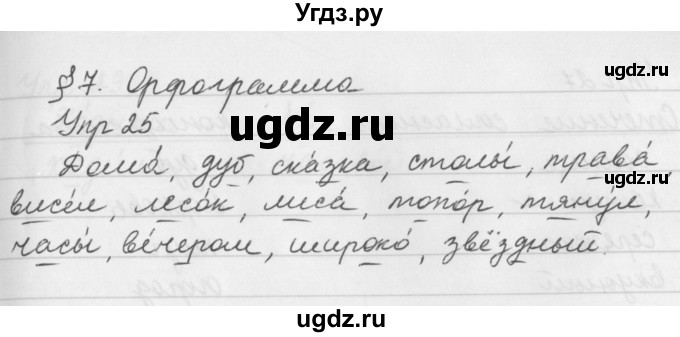 Угдз.ру
ugdz.ru
§7. Орфограмма
Упр 25
ugdz.ru
Дома́, дуб, ска́зка, столы́, трава́
ugdz.ru
висе́л, лесо́к, лиса́, топо́р, тяну́л,
часы́, ве́чером, широко́, звёздный.
ugdz.ru
ugdz.ru